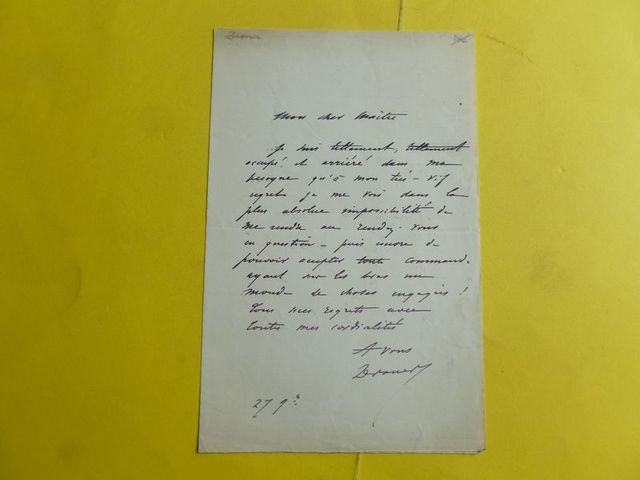 Draner
Mon cher Maître
Je suis tellement, tellement
occupé ! et arriéré dans ma
besogne qu'à mon très-vif
regret je me vois dans la
plus absolue impossibilité de
me rendre au rendez-vous
en question - puis encore de
pouvoir accepter toute command.
ayant sur les bras un
monde de choses engagées !
Tous mes regrets avec
toutes mes cordialités
A vous
Draner
27 9e